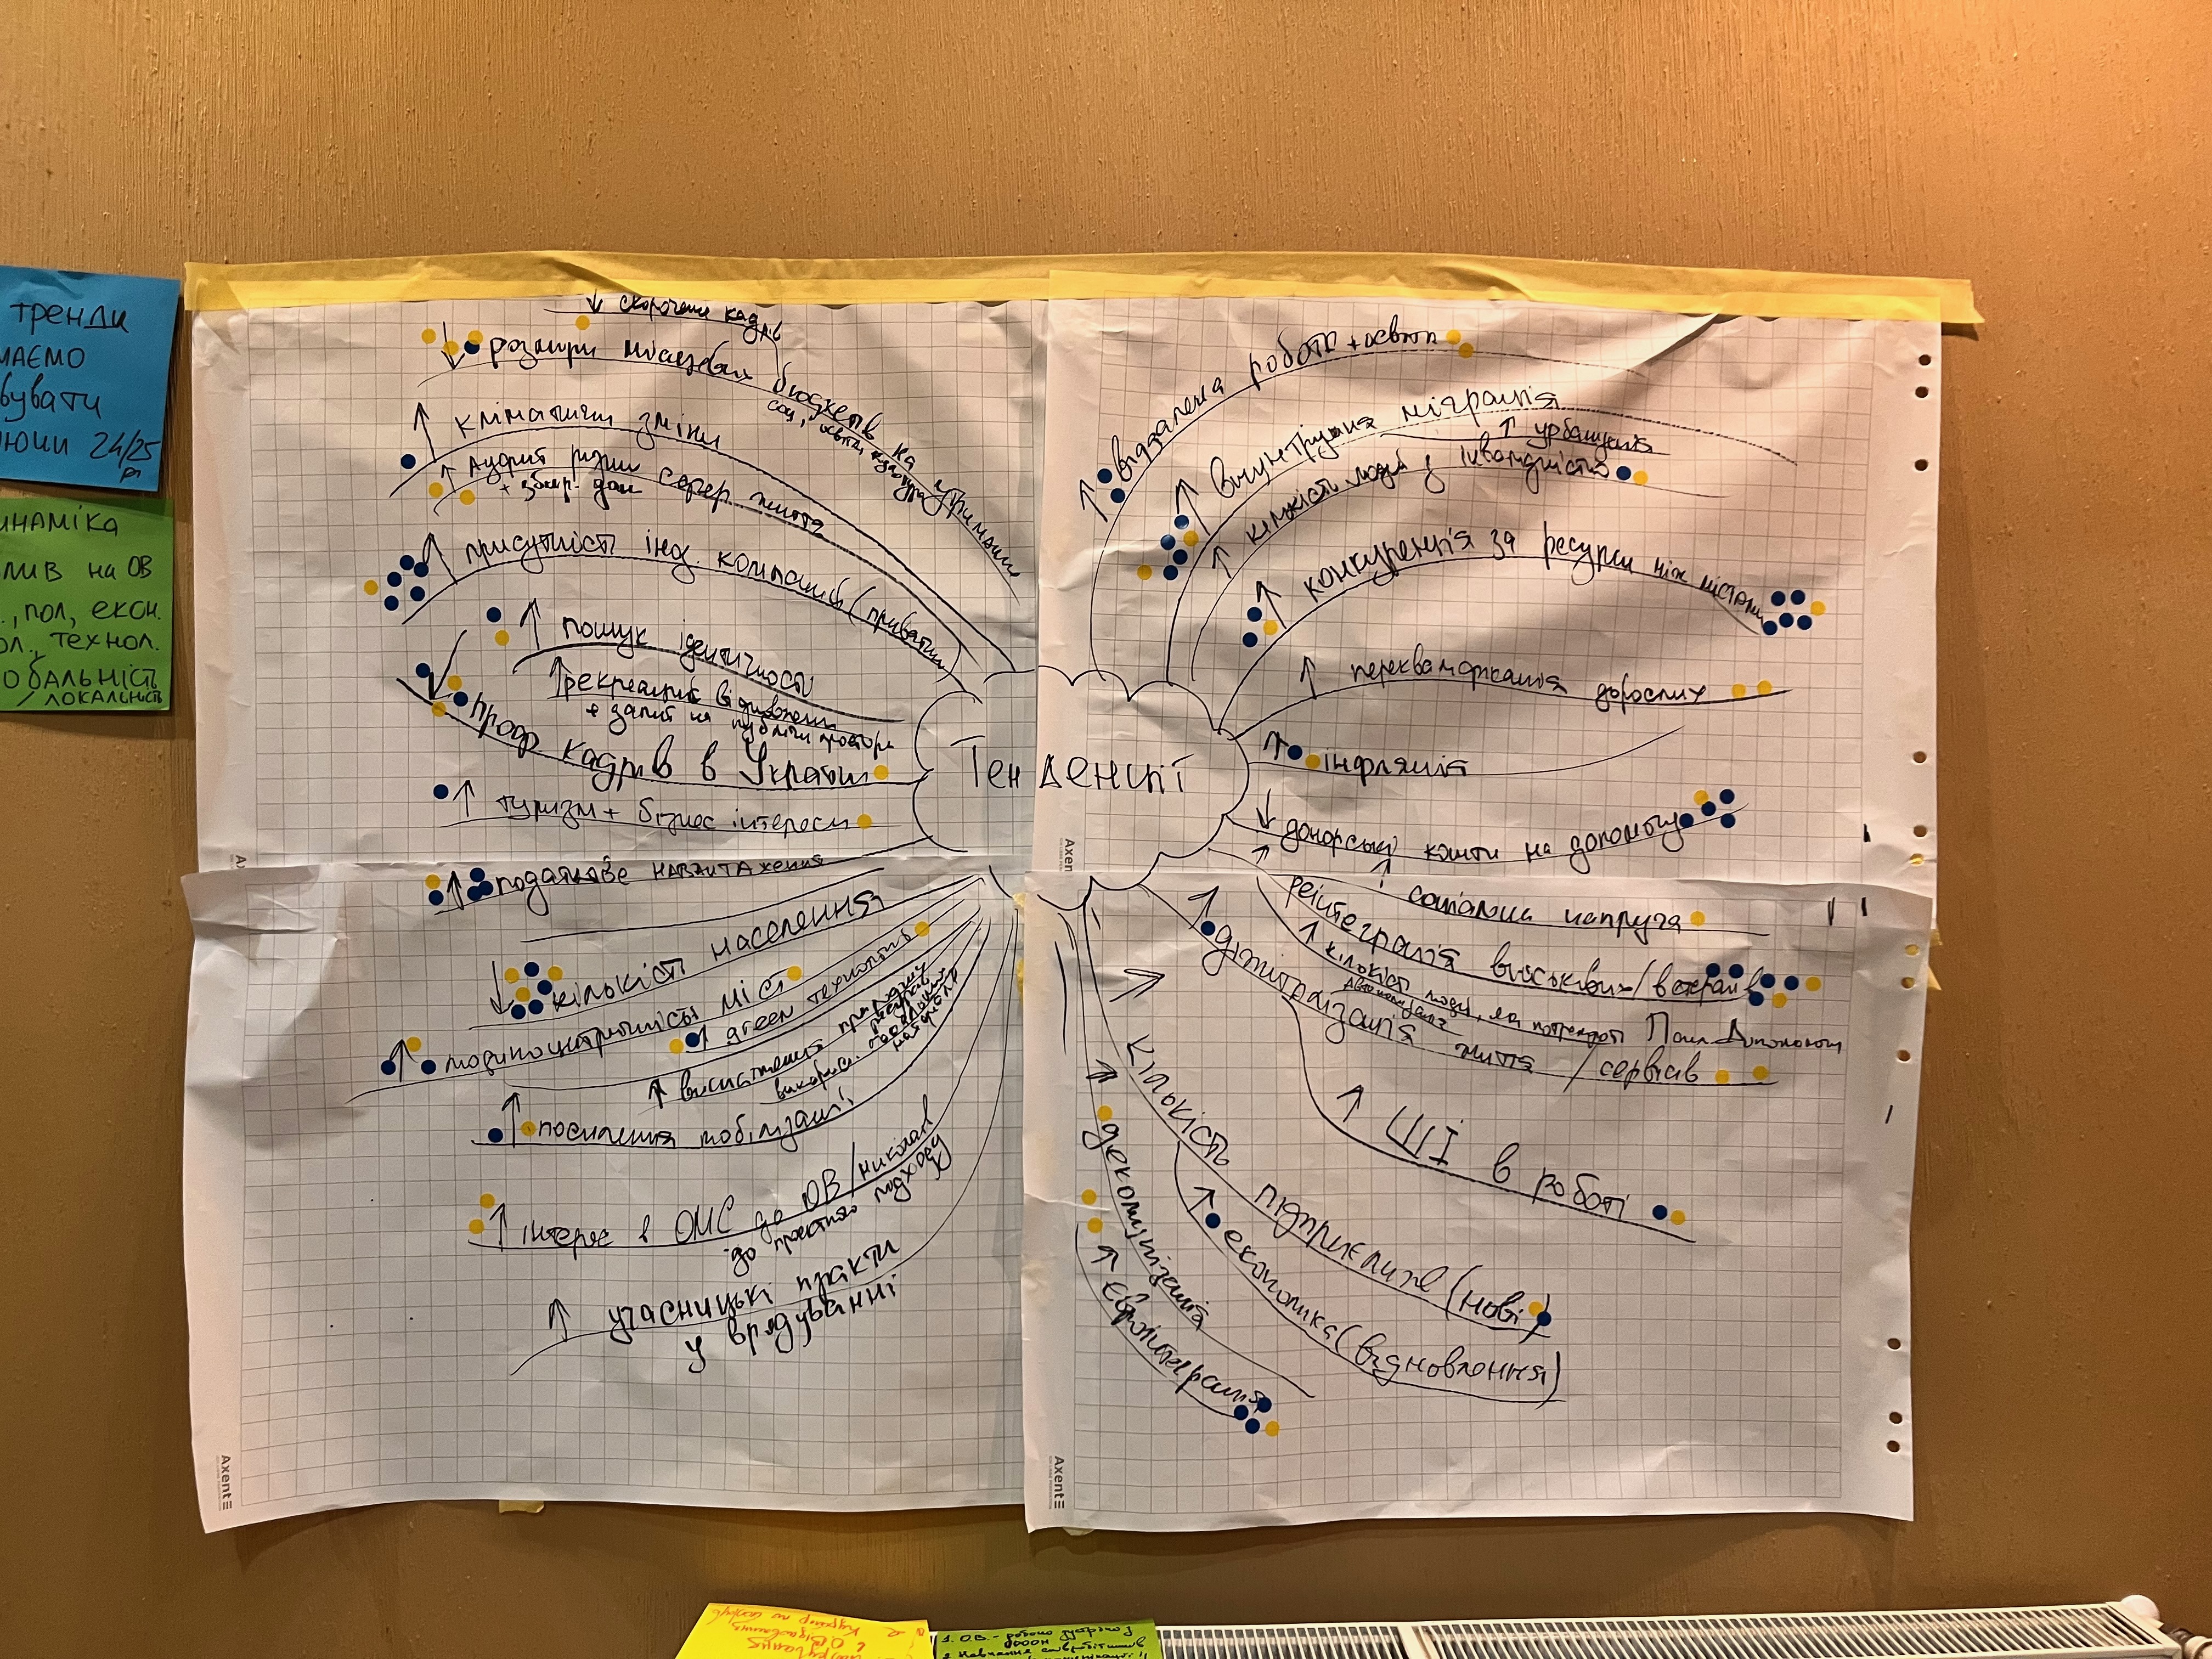 тренди
МАЄМО
24/25
рр
ИНАМІКА
ЛИВ на ОВ
., ПОЛ, ЕКОН.
ОЛ., ТЕХНОЛ.
ОБАЛЬНІСТЬ
/ ЛОКАЛЬНІСТЬ
Тенденції
↓ скорочення кадрів
↓ розміри місцевих бюджетів на утримання
соц, освіти, культура
↑ кліматичні зміни
↑ Аудит
↑ присутність інд. компаній (приватни
↑ пошук ідентичності
↑ рекреація
+ запит на публічні простори
↓ проф кадрів в Україні
↑ туризм + бізнес інтереси
↑ податкове навантаження
↓ кількість населення
↑ людиноцентричність міст
↑ green технологій
↑ виснаження природних ресурсів
↑ посилення мобілізації
↑ інтерес в ОМС до ОВ/
до проектного підходу
↑ учасницькі практи
у врядуванні
↑ віддалена робота + освіта
↑ внутрішня міграція
↑ урбанізація
↑ кількість людей з інвалідністю
↑ конкуренція за ресурси між містами
↑ перекваліфікація дорослих
↑ інфляція
↓ донорські кошти на допомогу
↑ соціальна напруга
↑ реінтеграція військових/ветеранів
↑ кількість людей, які потребують Псих. Допомоги
↑ діджиталізація життя / сервісів
↑ ШІ в роботі
↑ кількість підприємців (нові)
↑ економіка (відновлення)
↑ декомунізація
↑ Євроінтеграція
Axent
Axent
Axent
1. ОВ. -